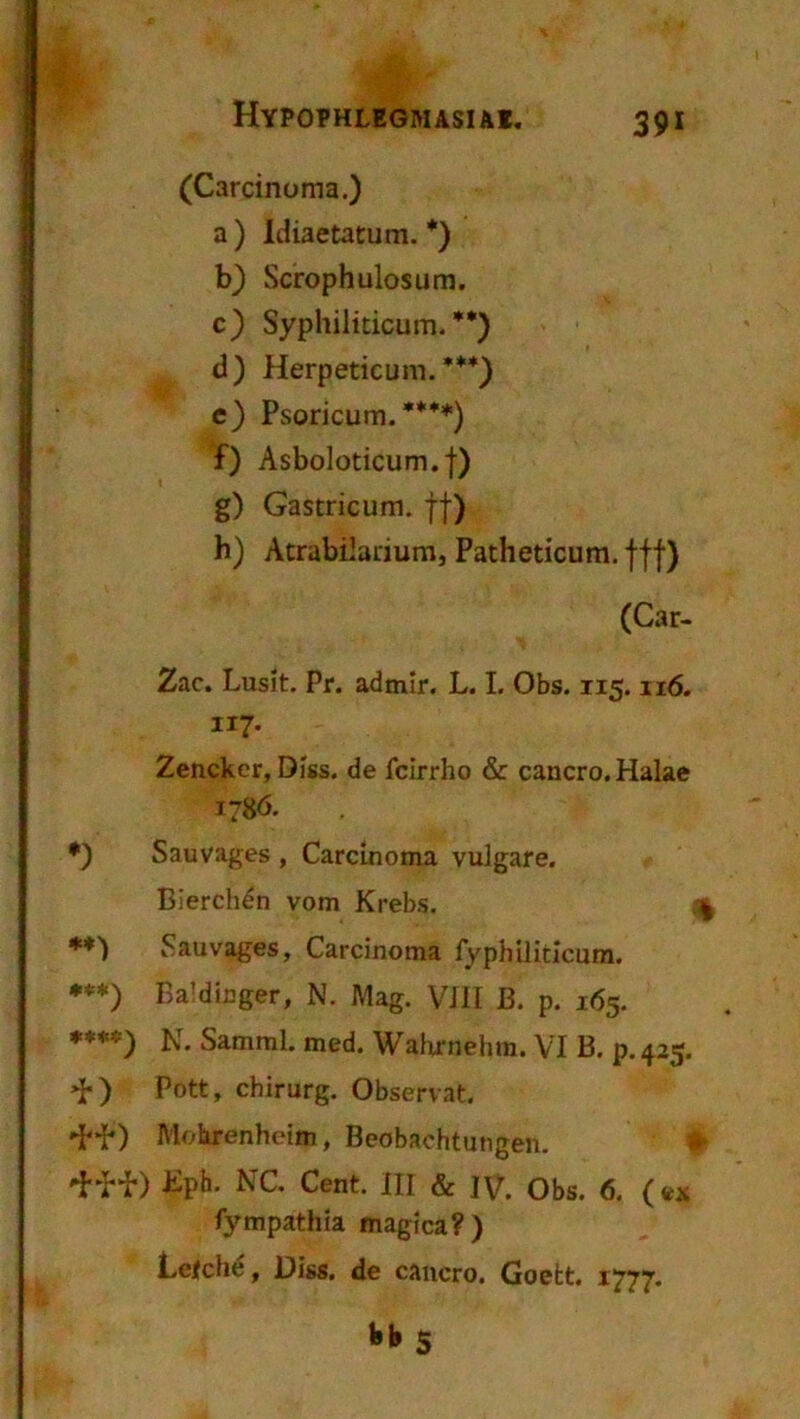 HYPOPHLEGMASIAE. 391
(Carcinoma.)
a) Idiaetatum. *)
b) Scrophulosum.
c) Syphiliticum. **)
d) Herpeticum. ***)
e) Psoricum. ****)
f) Asboloticum. †)
g) Gastricum. ††)
h) Atrabilarium, Patheticum. †††)
(Car-
Zac. Lusit. Pr. admir. L. I. Obs. 115. 116.
117.
Zencker, Diss. de ſcirrho & cancro. Halae
1786.
*) Sauvages, Carcinoma vulgare.
Bierchén vom Krebs.
**) Sauvages, Carcinoma ſyphiliticum.
***) Baldinger, N. Mag. VIII B. p. 165.
****) N. Samml. med. Wahrnehm. VI B. p. 425.
†) Pott, chirurg. Observat.
††) Mohrenheim, Beobachtungen.
†††) Eph. NC. Cent. III & IV. Obs. 6. (ex
ſympathia magica?)
Leſché, Diss. de cancro. Goett. 1777.
bb 5